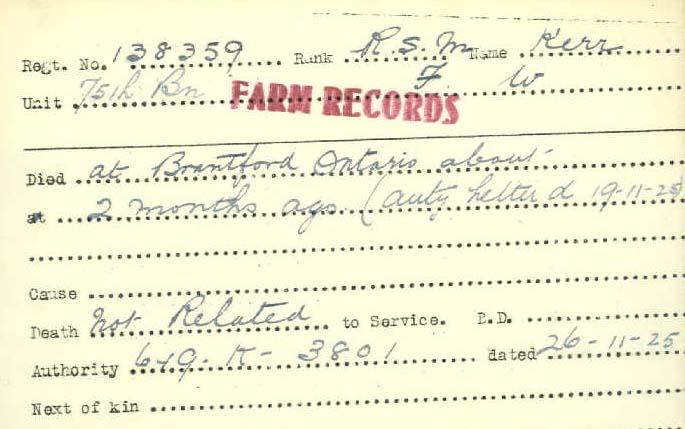 Regt. No. 138359 Rank R.S.M Name Kerr
Unit 75th Bn FARM RECORDS F W
Died at Brantford Ontario about
at 2 months ago (auty letter d 19-11-25)
Cause
Death not Related to Service. B.D.
Authority 649-K-3801 dated 26-11-25
Next of kin